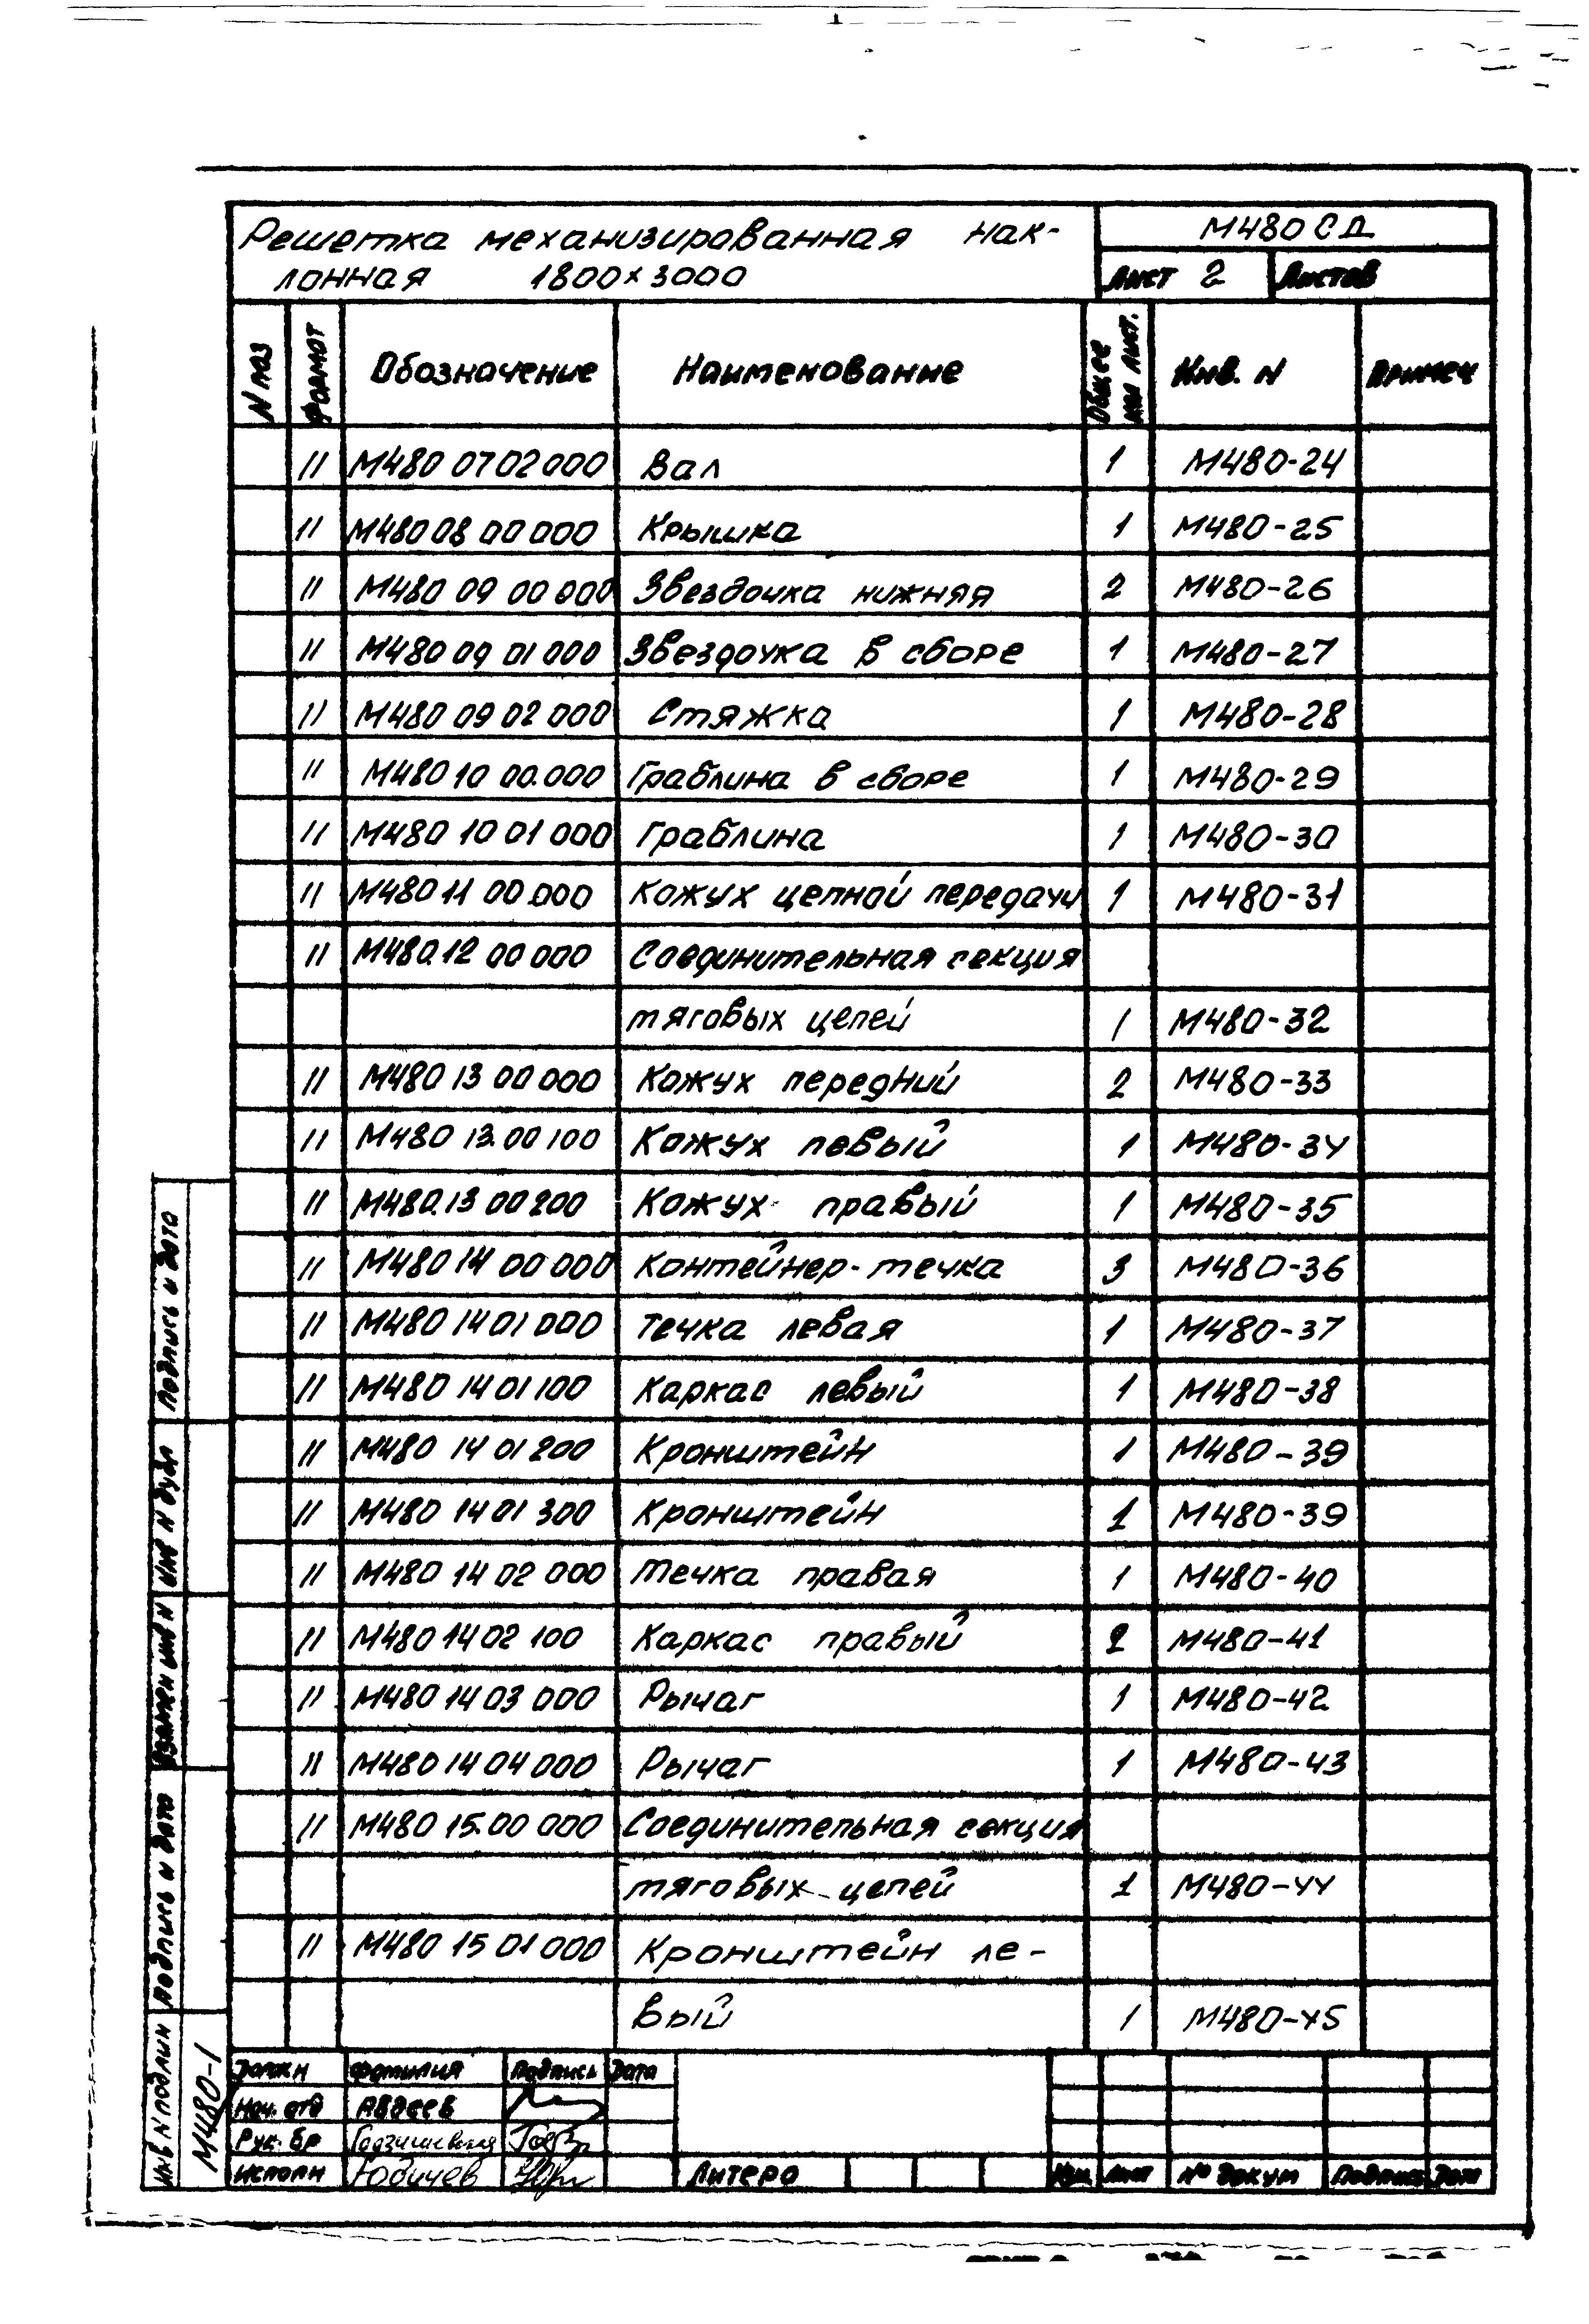 Решетка механизированная нак-
лонная 1800×3000
М480СД
Лист 2 Листов
N поз Формат Обозначение Наименование Общее кол лист. Инв. N Примеч
11 М480 07 02 000 Вал 1 М480-24
11 М480 08 00 000 Крышка 1 М480-25
11 М480 09 00 000 Звездочка нижняя 2 М480-26
11 М480 09 01 000 Звездочка в сборе 1 М480-27
11 М480 09 02 000 Стяжка 1 М480-28
11 М480 10 00.000 Граблина в сборе 1 М480-29
11 М480 10 01 000 Граблина 1 М480-30
11 М480 11 00.000 Кожух цепной передачи 1 М480-31
11 М480.12 00 000 Соединительная секция
тяговых цепей 1 М480-32
11 М480 13 00 000 Кожух передний 2 М480-33
11 М480 13.00 100 Кожух левый 1 М480-34
11 М480.13 00 200 Кожух правый 1 М480-35
11 М480 14 00 000 Контейнер-течка 3 М480-36
11 М480 14 01 000 Течка левая 1 М480-37
11 М480 14 01 100 Каркас левый 1 М480-38
11 М480 14 01 200 Кронштейн 1 М480-39
11 М480 14 01 300 Кронштейн 1 М480-39
11 М480 14 02 000 Течка правая 1 М480-40
11 М480 14 02 100 Каркас правый 2 М480-41
11 М480 14 03 000 Рычаг 1 М480-42
11 М480 14 04 000 Рычаг 1 М480-43
11 М480 15.00 000 Соединительная секция
тяговых цепей 1 М480-44
11 М480 15 01 000 Кронштейн ле-
вый 1 М480-45
Должн Фамилия Подпись Дата
Нач. отд Авдеев
Рук. бр
Исполн Юдичев
Литера
Изм Лист № докум Подпись Дата
Подпись и дата
Инв N дубл
Взамен инв N
Подпись и дата
Инв N подлин
М480-1